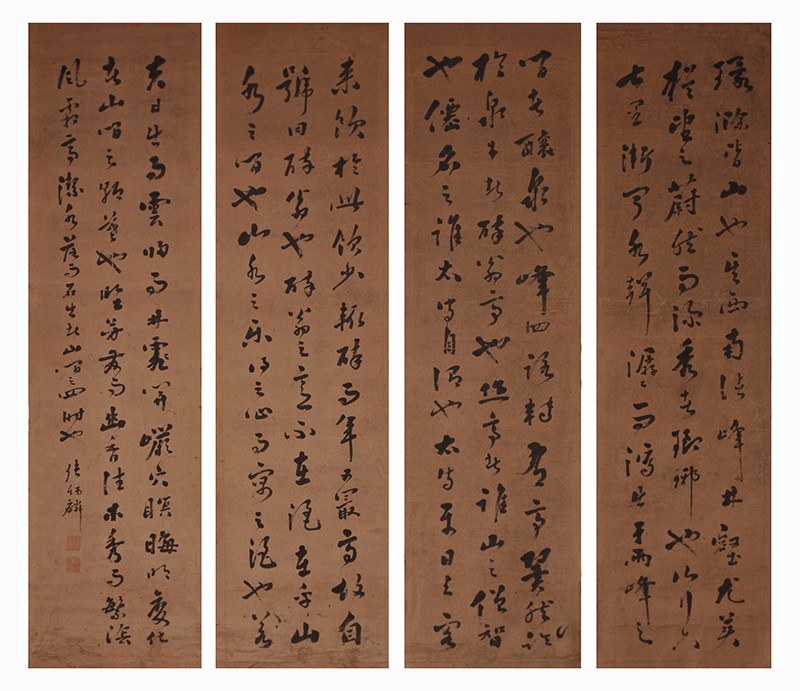 環滁皆山也其西南諸峰林壑尤美
望之蔚然而深秀者瑯琊也山行六
七里漸聞水聲潺〻而瀉出于兩峰之
間者釀泉也峰回路轉有亭翼然臨
於泉上者醉翁亭也作亭者誰山之僧智
也僊名之誰太守自謂也太守平日与客
來飲於此飲少輒醉而年又最高故自
號曰醉翁也醉翁之意不在酒在乎山
水之間也山水之樂得之心而寓之酒也若
夫日出而雲歸而林霏開巖穴暝晦明變化
者山間之朝暮也野芳發而幽香佳木秀而繁陰
風霜高潔水落而石出者山間之四時也